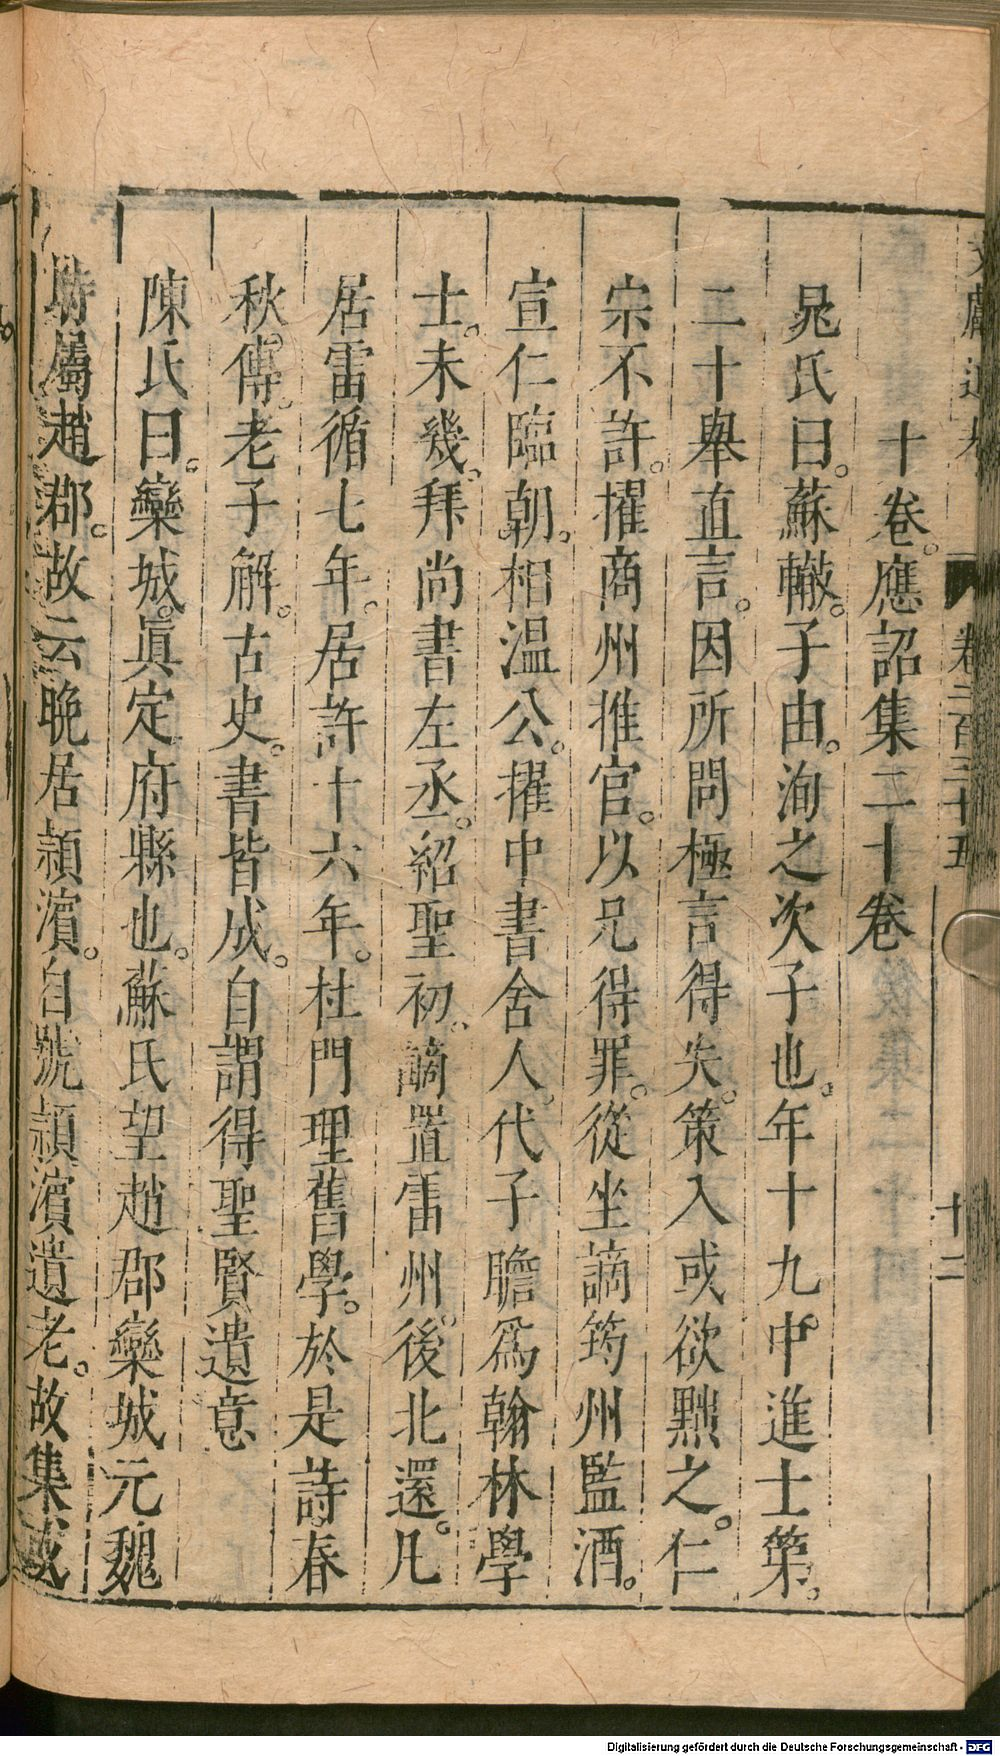 文獻通考 卷二百三十五 十二
十卷。應詔集二十卷
晁氏曰。蘇轍。子由。洵之次子也。年十九中進士第。
二十舉直言。因所問極言得失。策入或欲黜之。仁
宗不許。擢商州推官。以兄得罪。從坐謫筠州監酒。
宣仁臨朝。相溫公。擢中書舍人。代子瞻爲翰林學
士。未幾。拜尚書左丞。紹聖初。謫置雷州。後北還。凡
居雷循七年。居許十六年。杜門理舊學。於是詩。春
秋。傳。老子解。古史。書皆成。自謂得聖賢遺意
陳氏曰。欒城。眞定府縣也。蘇氏望趙郡欒城元魏
時屬趙郡。故云晩居潁濱。自號潁濱遺老。故集或
Digitalisierung gefördert durch die Deutsche Forschungsgemeinschaft - DFG